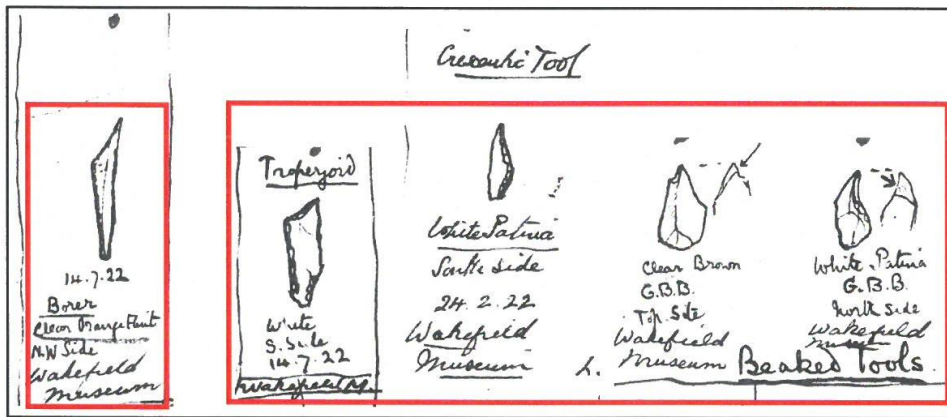 Crescentic Tool
14.7.22
Borer
Clear Orange Flint
N.W Side
Wakefield
Museum
Trapezoid
White
S. Side
14.7.22
Wakefield M.
White Patina
South Side
24.2.22
Wakefield
Museum
Clear Brown
G.B.B.
Top Site
Wakefield
Museum
White Patina
G.B.B.
North Side
Wakefield
Museum
Beaked Tools.